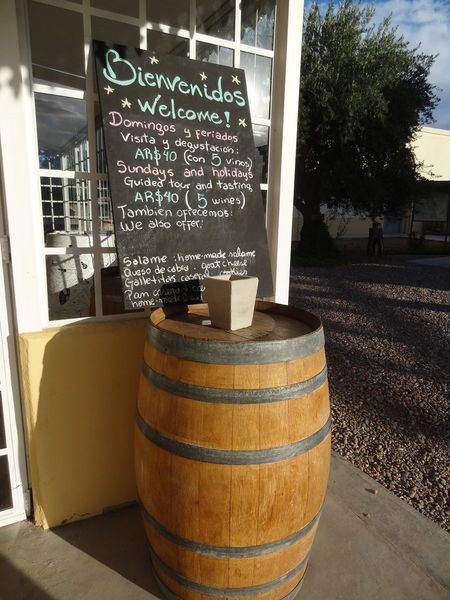 Bienvenidos
Welcome!
Domingos y feriados
Visita y degustación:
AR$40 (con 5 vinos)
Sundays and holidays
Guided tour and tasting
AR$40 (5 wines)
También ofrecemos:
We also offer:
Salame: home-made salame
Queso de cabra: goat cheese
Galletitas caseras cookies
Pan
home-made